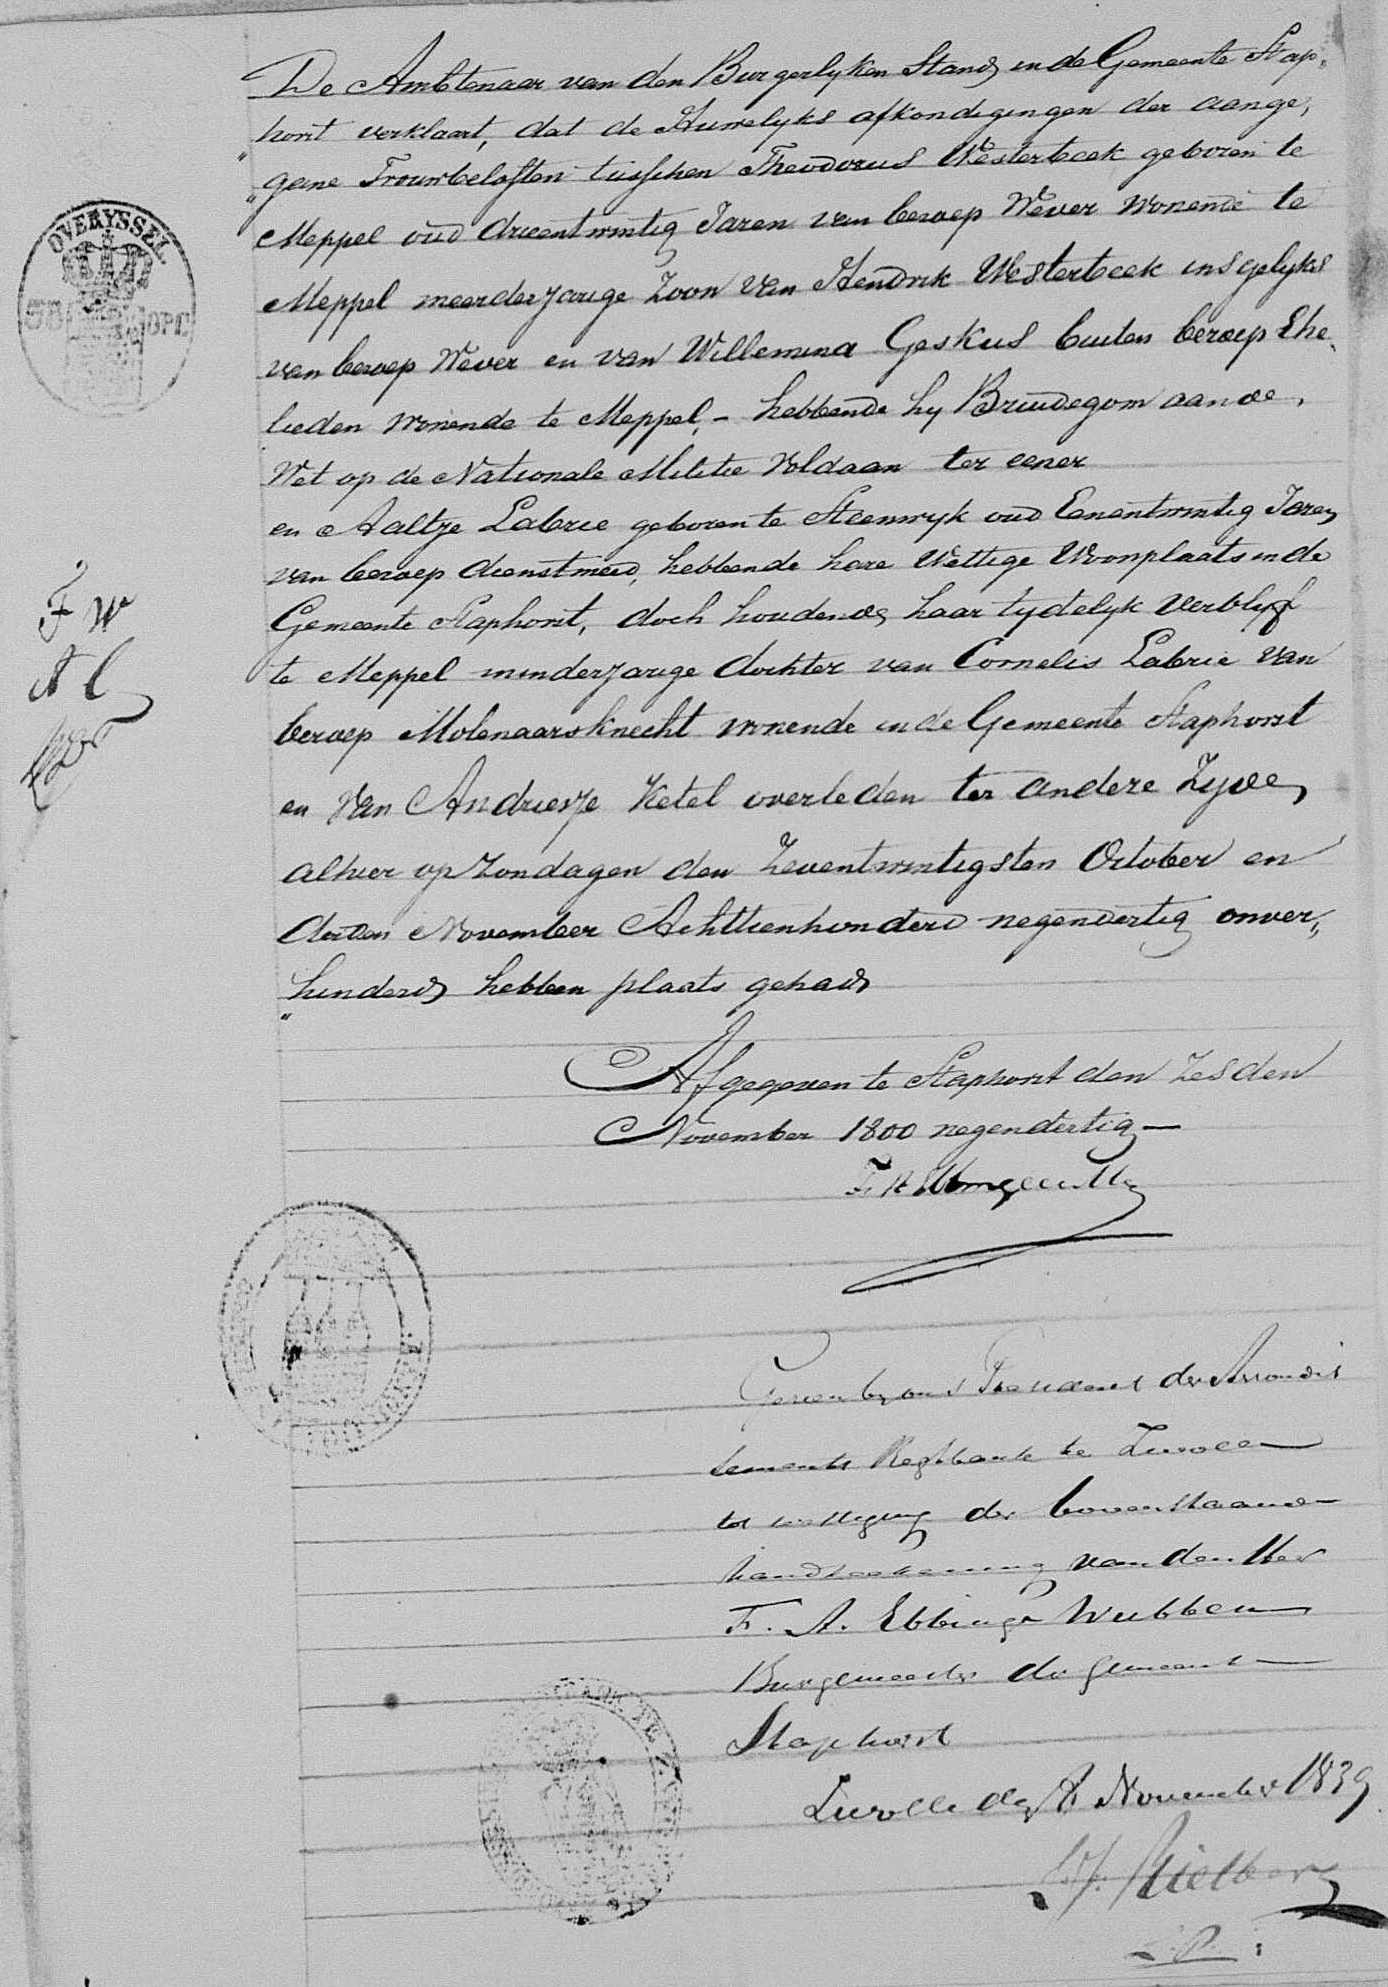 OVERYSSEL
De Ambtenaar van den Burgerlyken Stand in de Gemeente Stap„
horst verklaart, dat de Huwelyks afkondigingen der aange„
„gane Trouwbeloften tusschen Theodorus Westerbeek geboren te
Meppel oud drieentwintig Jaren van beroep Wever wonende te
Meppel meerderjarige Zoon van Hendrik Westerbeek insgelyks
van beroep Wever en van Willemina Geskus buiten beroep Ehe„
lieden wonende te Meppel, – hebbende hy Bruidegom aan de
Wet op de Nationale Militie Voldaan ter eener
en Aaltje Labrie geboren te Steenwyk oud Eenentwintig Jaren
van beroep dienstmeid, hebbende hare Wettige Woonplaats in de
Gemeente Staphorst, doch houdende haar tydelyk Verblyf
te Meppel minderjarige dochter van Cornelis Labrie van
beroep Molenaarsknecht wonende in de Gemeente Staphorst
en Van Andriesje Ketel overleden ter andere Zyde,
alhier op Zondagen den Zeventwintigsten October en
derden November Achttienhonderd negendertig onver„
„hinderd hebben plaats gehad
T W
A L
Afgegeven te Staphorst den Zesden
November 1800 negendertig –
Gezien by ons President der Arrondis
sements Regtbank te Zwolle
tot wettiging der bovenstaande
handteekening van den Heer
F. A. Ebbinge Wubben
Burgemeester der gemeente
Staphorst
Zwolle den 8 November 1839